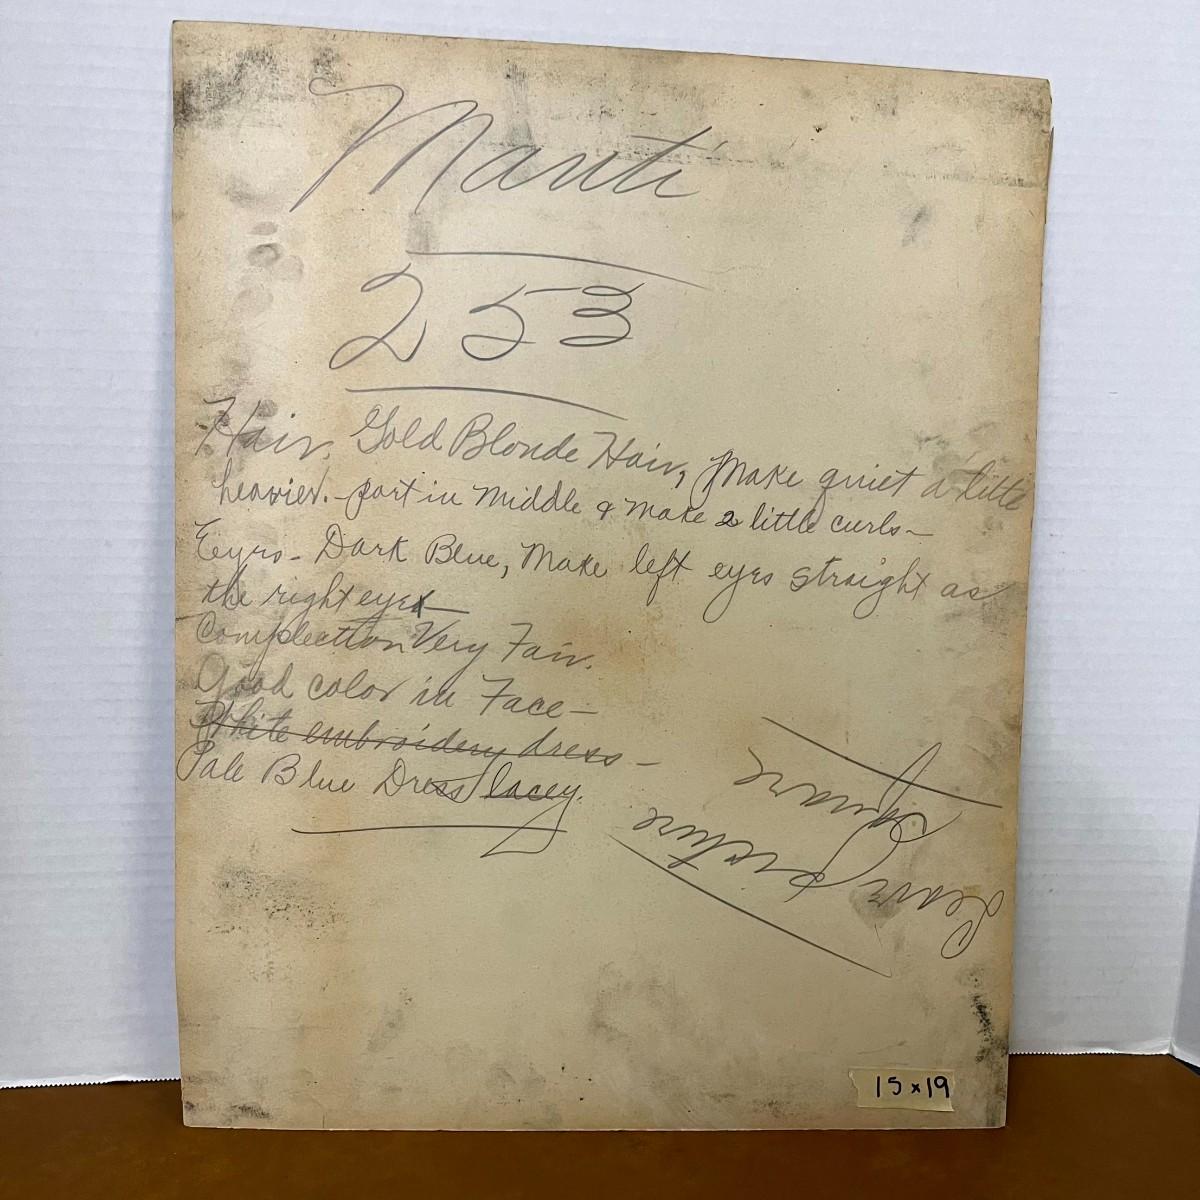 Manti
253
Hair. Gold Blonde Hair, Make quiet a little
heavier. - part in Middle & Make 2 little curls -
Eeyes - Dark Blue, Make left eyes straight as
the right eyes
Complection Very Fair.
Good color in Face -
White embroidery dress -
Pale Blue Dress lacey.
Leave picture
Square
15x19